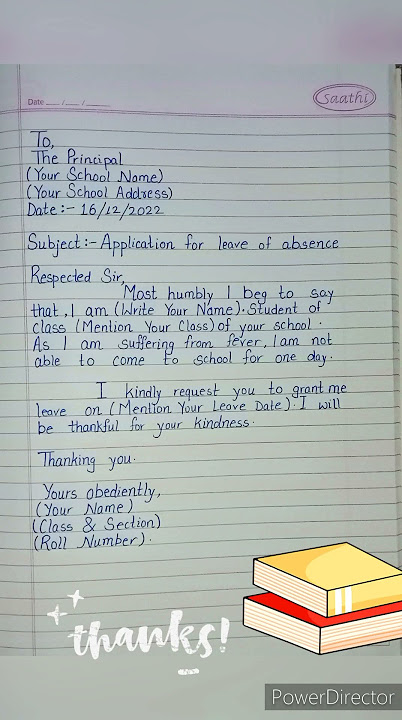 Date ___/___/___
Saathi
To,
The Principal
(Your School Name)
(Your School Address)
Date:- 16/12/2022
Subject:- Application for leave of absence
Respected Sir,
Most humbly I beg to say
that, I am (Write Your Name). Student of
class (Mention Your Class) of your school.
As I am suffering from fever, I am not
able to come to school for one day.
I kindly request you to grant me
leave on (Mention Your Leave Date). I will
be thankful for your kindness.
Thanking you.
Yours obediently,
(Your Name)
(Class & Section)
(Roll Number).
thanks!
PowerDirector